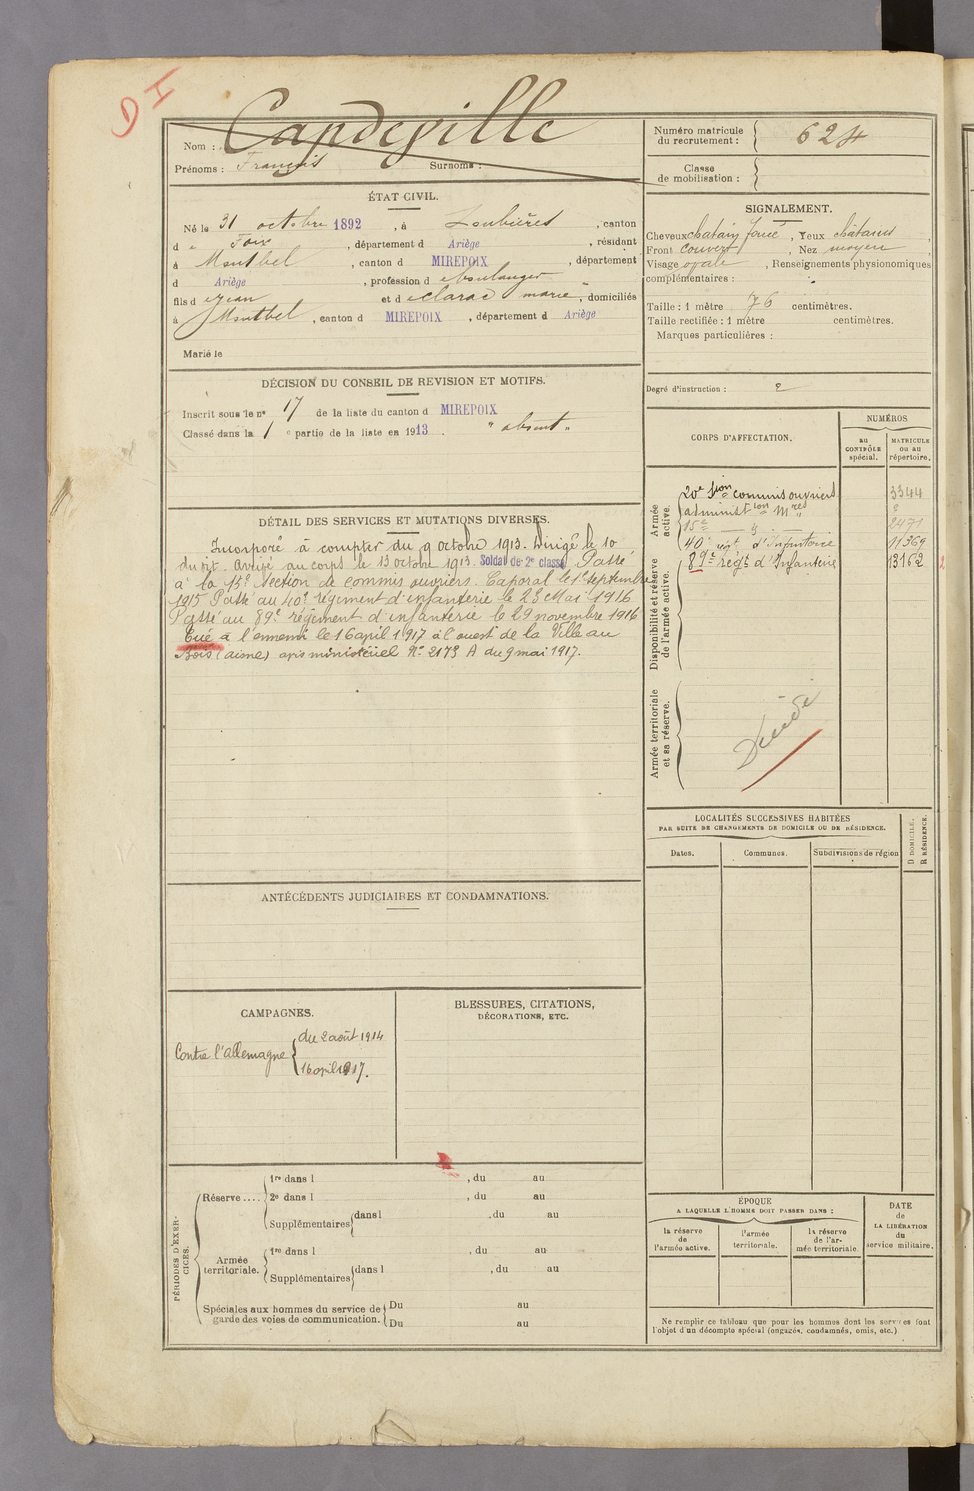 DI
Nom : Capdeville
Prénoms : François Surnoms :
Numéro matricule du recrutement : 624
Classe de mobilisation :
ÉTAT CIVIL.
Né le 31 octobre 1892, à Loubières, canton
d e Foix, département d Ariège, résidant
à Montbel, canton d MIREPOIX, département
d Ariège, profession d e boulanger
fils d e Jean et d e Clarac Marie, domiciliés
à Montbel, canton d MIREPOIX, département d Ariège
Marié le
SIGNALEMENT.
Cheveux chatain foncé, Yeux châtains,
Front couvert, Nez moyen
Visage ovale, Renseignements physionomiques
complémentaires :
Taille : 1 mètre 76 centimètres.
Taille rectifiée : 1 mètre centimètres.
Marques particulières :
Degré d'instruction : 2
DÉCISION DU CONSEIL DE REVISION ET MOTIFS.
Inscrit sous le no 17 de la liste du canton d MIREPOIX
Classé dans la 1 e partie de la liste en 1913. "absent"
DÉTAIL DES SERVICES ET MUTATIONS DIVERSES.
Incorporé à compter du 9 octobre 1913. Dirigé le 10
du dit. Arrivé au corps le 13 octobre 1913. Soldat de 2e classe. Passé
à la 15e Section de commis ouvriers. Caporal le 1er septembre
1915 Passé au 40e régiment d'infanterie le 23 Mai 1916
Passé au 89e régiment d'infanterie le 29 novembre 1916
Tué à l'ennemi le 16 april 1917 à l'ouest de la Ville au
Bois (aisne) avis ministériel No 2173 A du 9 mai 1917.
CORPS D'AFFECTATION.
NUMÉROS
au CONTRÔLE spécial.
MATRICULE ou au répertoire.
Armée active.
20e Son commis ouvriers 3344
administion Mres
15e 2471
40e rgt d'Infanterie 11369
Disponibilité et réserve de l'armée active.
89e régt d'Infanterie 13162
Armée territoriale et sa réserve.
Décédé
LOCALITÉS SUCCESSIVES HABITÉES
PAR SUITE DE CHANGEMENTS DE DOMICILE OU DE RÉSIDENCE.
Dates. Communes. Subdivisions de région
D DOMICILE. R RÉSIDENCE.
ANTÉCÉDENTS JUDICIAIRES ET CONDAMNATIONS.
CAMPAGNES.
Contre l'allemagne
du 2 août 1914
16 april 1917.
BLESSURES, CITATIONS,
DÉCORATIONS, ETC.
PÉRIODES D'EXER-
CICES.
Réserve ....
1re dans l , du au
2e dans l , du au
Supplémentaires dans l , du au
Armée territoriale.
1re dans l , du au
Supplémentaires dans l , du au
Spéciales aux hommes du service de garde des voies de communication.
Du au
Du au
ÉPOQUE
A LAQUELLE L'HOMME DOIT PASSER DANS :
la réserve de l'armée active.
l'armée territoriale.
la réserve de l'ar-
mée territoriale.
DATE de LA LIBÉRATION du service militaire.
Ne remplir ce tableau que pour les hommes dont les services font
l'objet d'un décompte spécial (engagés, condamnés, omis, etc.)